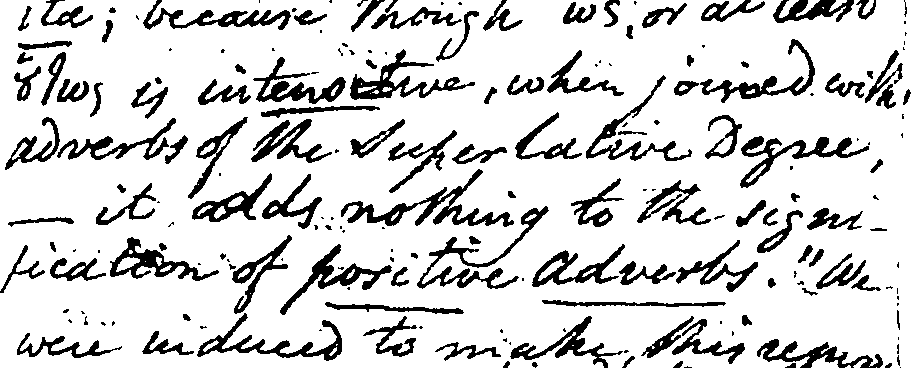 ita; because though ὡς, or at least
is intensitive, when joined with
adverbs of the Superlative Degree,
— it adds nothing to the signi-
fication of positive adverbs." We
were induced to make this